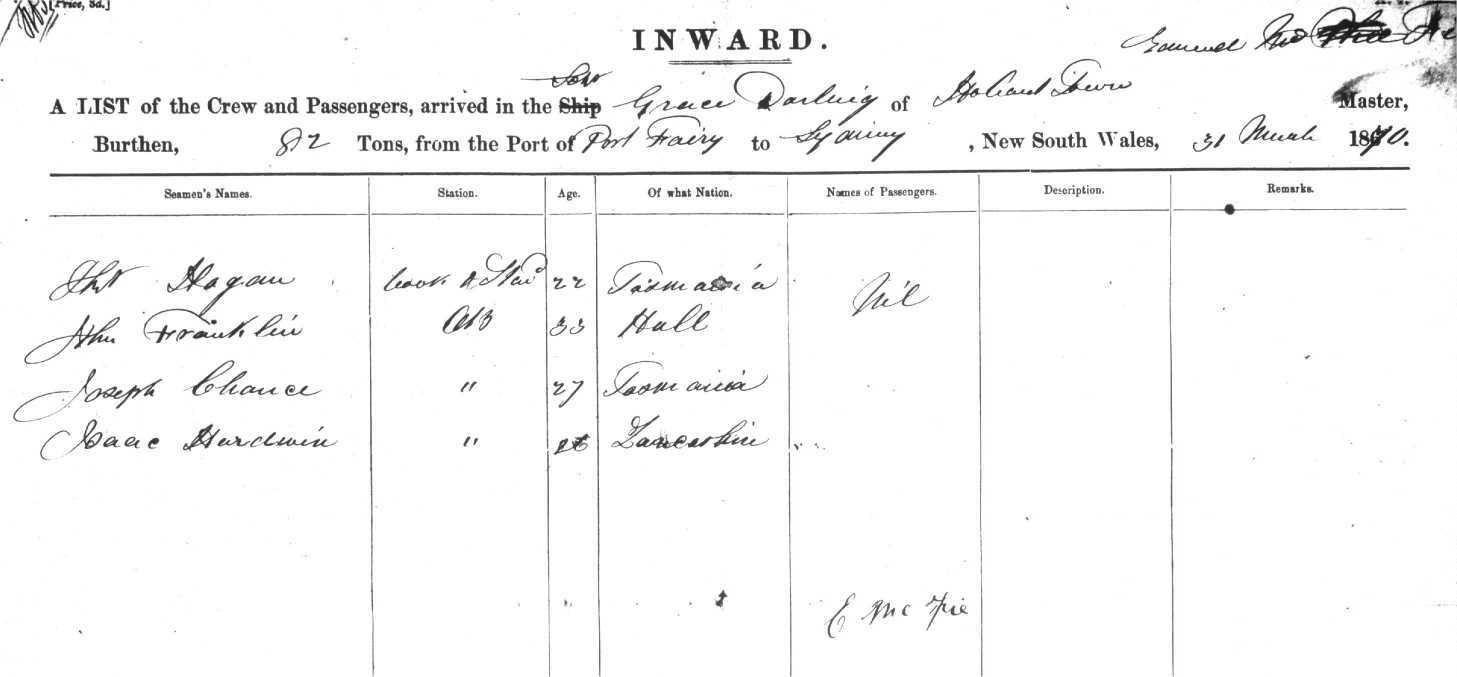 [Price, 3d.]
INWARD.
Samuel Mc
Schr
A LIST of the Crew and Passengers, arrived in the Ship Grace Darling of Hobart Town Master,
Burthen, 82 Tons, from the Port of Port Fairy to Sydney, New South Wales, 31 March 1870.
Seamen's Names. Station. Age. Of what Nation. Names of Passengers. Description. Remarks.
Hagan Cook & Stew 22 Tasmania Nil
Jhn Franklin AB 33 Hull
Joseph Chance " 27 Tasmania
Isaac Hardwin " 26 Lancashire
E Mc Fie